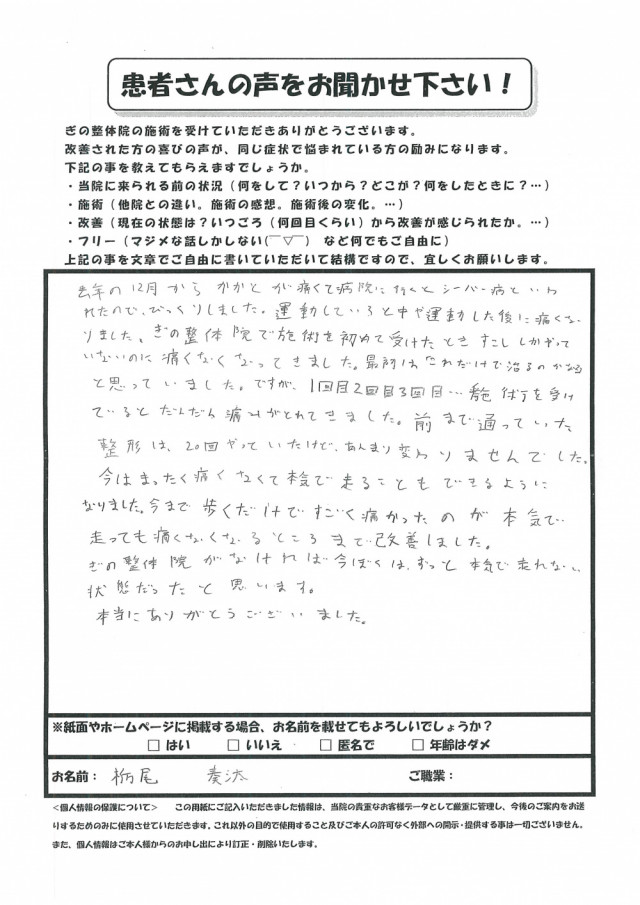 患者さんの声をお聞かせ下さい！
ぎの整体院の施術を受けていただきありがとうございます。
改善された方の喜びの声が、同じ症状で悩まれている方の励みになります。
下記の事を教えてもらえますでしょうか。
・当院に来られる前の状況（何をして？いつから？どこが？何をしたときに？…）
・施術（他院との違い。施術の感想。施術後の変化。…）
・改善（現在の状態は？いつごろ（何回目くらい）から改善が感じられたか。…）
・フリー（マジメな話しかしない(￣▽￣)　など何でもご自由に）
上記の事を文章でご自由に書いていただいて結構ですので、宜しくお願いします。
去年の12月からかかとが痛くて病院に行くとシーバー病といわ
れたので、びっくりしました。運動していると中や運動した後に痛くな
りました。ぎの整体院で施術を初めて受けたときすこししかやって
いないのに痛くなくなってきました。最初はこれだけで治るのかな
と思っていました。ですが、1回目2回目3回目…施術を受け
ているとだんだん痛みがとれてきました。前まで通っていた
整形は、20回やっていたけど、あんまり変わりませんでした。
今はまったく痛くなくて本気で走ることもできるように
なりました。今まで歩くだけですごく痛かったのが本気で
走っても痛くなくなるところまで改善しました。
ぎの整体院がなければ今ぼくは、ずっと本気で走れない
状態だったと思います。
本当にありがとうございました。
※紙面やホームページに掲載する場合、お名前を載せてもよろしいでしょうか？
□ はい　□ いいえ　□ 匿名で　□ 年齢はダメ
お名前：栃尾　奏汰　ご職業：
＜個人情報の保護について＞　この用紙にご記入いただきました情報は、当院の貴重なお客様データとして厳重に管理し、今後のご案内をお送
りするためのみに使用させていただきます。これ以外の目的で使用すること及びご本人の許可なく外部への開示・提供する事は一切ございません。
また、個人情報はご本人様からのお申し出により訂正・削除いたします。